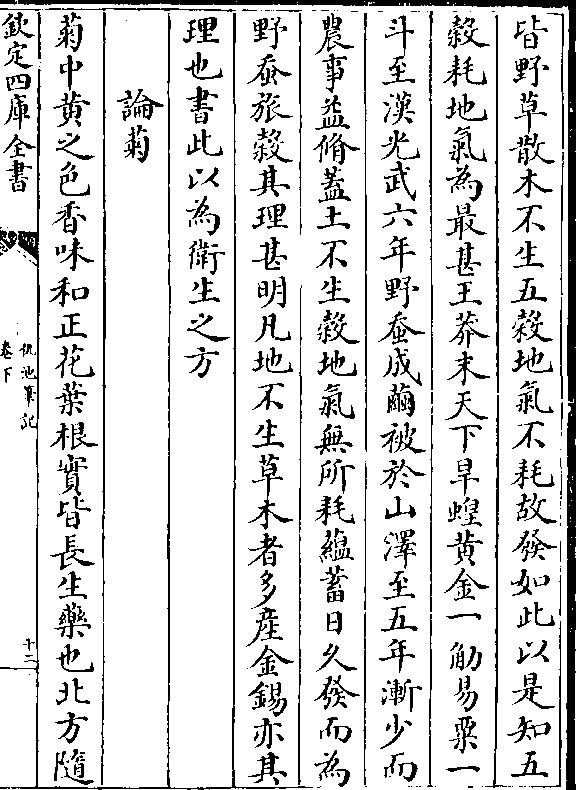 皆野草散木不生五穀地氣不耗故發如此以是知五
穀耗地氣為最甚王莽末天下旱蝗黄金一觔易粟一
斗至漢光武六年野蚕成繭被於山澤至五年漸少而
農事益脩蓋土不生穀地氣無所耗蘊蓄日久發而為
野蚕旅穀其理甚明凡地不生草木者多産金錫亦其
理也書此以為衛生之方
論菊
菊中黄之色香味和正花葉根實皆長生藥也北方隨
欽定四庫全書
仇池筆記
卷下
十二